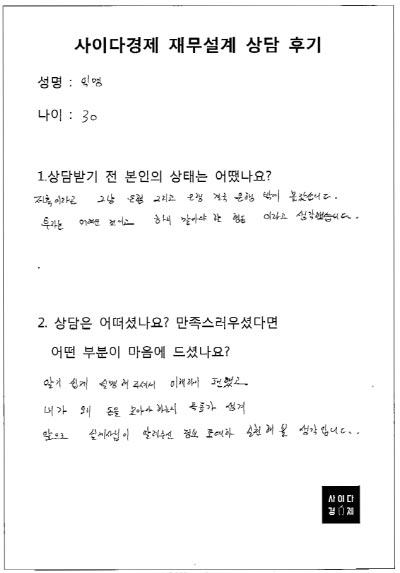 사이다경제 재무설계 상담 후기
성명 : 익명
나이 : 30
1.상담받기 전 본인의 상태는 어땠나요?
저축이라고 그냥 은행 그리고 은행 적금 은행 밖에 몰랐습니다.
투자는 어려운 것이고 하지 말아야 한 행동 이라고 생각했습니다.
2. 상담은 어떠셨나요? 만족스러우셨다면
어떤 부분이 마음에 드셨나요?
알기 쉽게 설명해 주셔서 이해하기 편했고
내가 왜 돈을 모아야 하는지 목표가 생겨
앞으로 설계사님이 알려주신 정보 토대로 실천해 볼 생각입니다..
사이다
경제